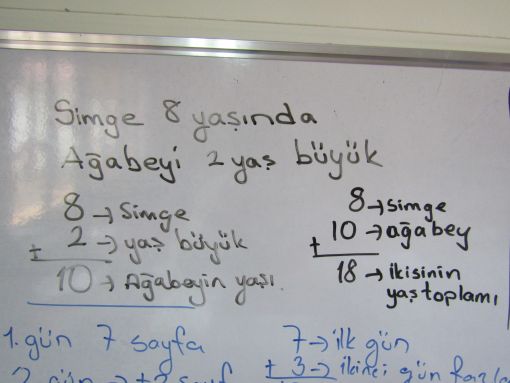 Simge 8 yaşında
Ağabeyi 2 yaş büyük
8 → Simge
+ 2 → yaş büyük
10 → Ağabeyin yaşı.
8 → simge
+ 10 → ağabey
18 → ikisinin
yaş toplamı
1. gün 7 sayfa
2. gün → +3 sayf
7 → ilk gün
+ 3 → ikinci gün fazla